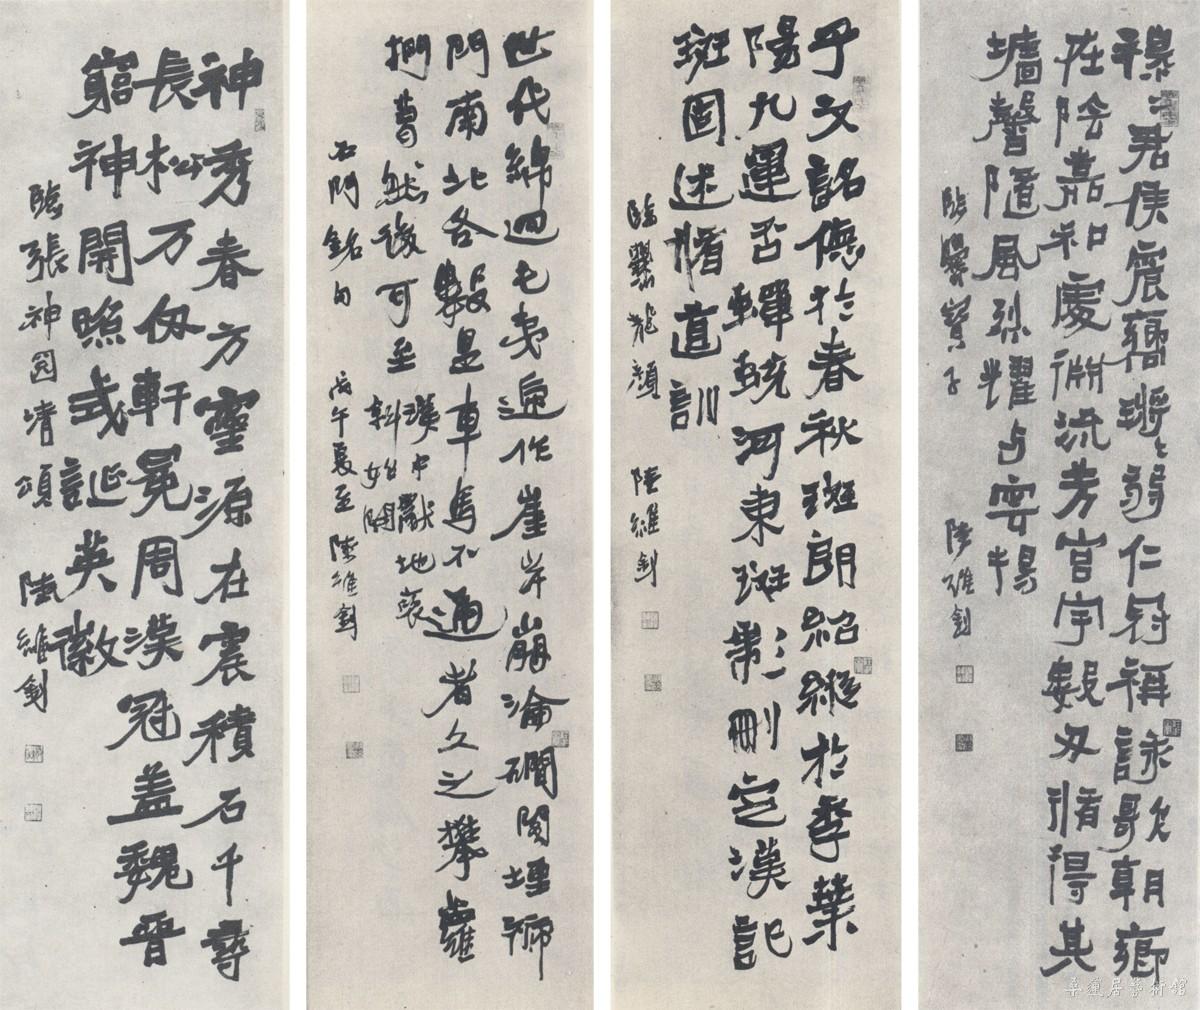 穆〻君侯震響鏘〻弱仁冠稱詠歌朝鄉
在陰嘉和處淵流芳宮宇數刃循得其
墻馨隨風烈耀与雲揚
臨爨寶子 陸維釗
子文銘德於春秋班朗紹縱於季葉
陽九運否蟬蛻河東班彪刪定漢記
班固述脩道訓
臨爨龍顏 陸維釗
世代綿迴屯夷遞作崖岸崩淪磵閣堙褫
門南北各數里車馬不通者久之攀蘿
捫葛然後可至
漢中獻地褒
斜始開
石門銘句 戊午夏至 陸維釗
神秀春方靈源在震積石千尋
長松万仞軒冕周漢冠盖魏晉
窮神開照式誕英徽
臨張神囧清頌 陸維釗